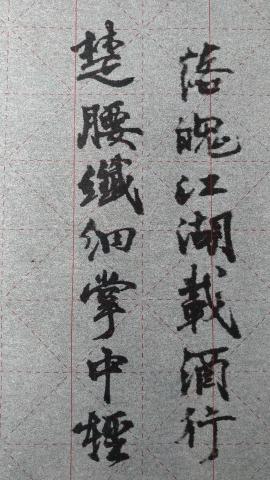 落魄江湖載酒行
楚腰纖細掌中輕